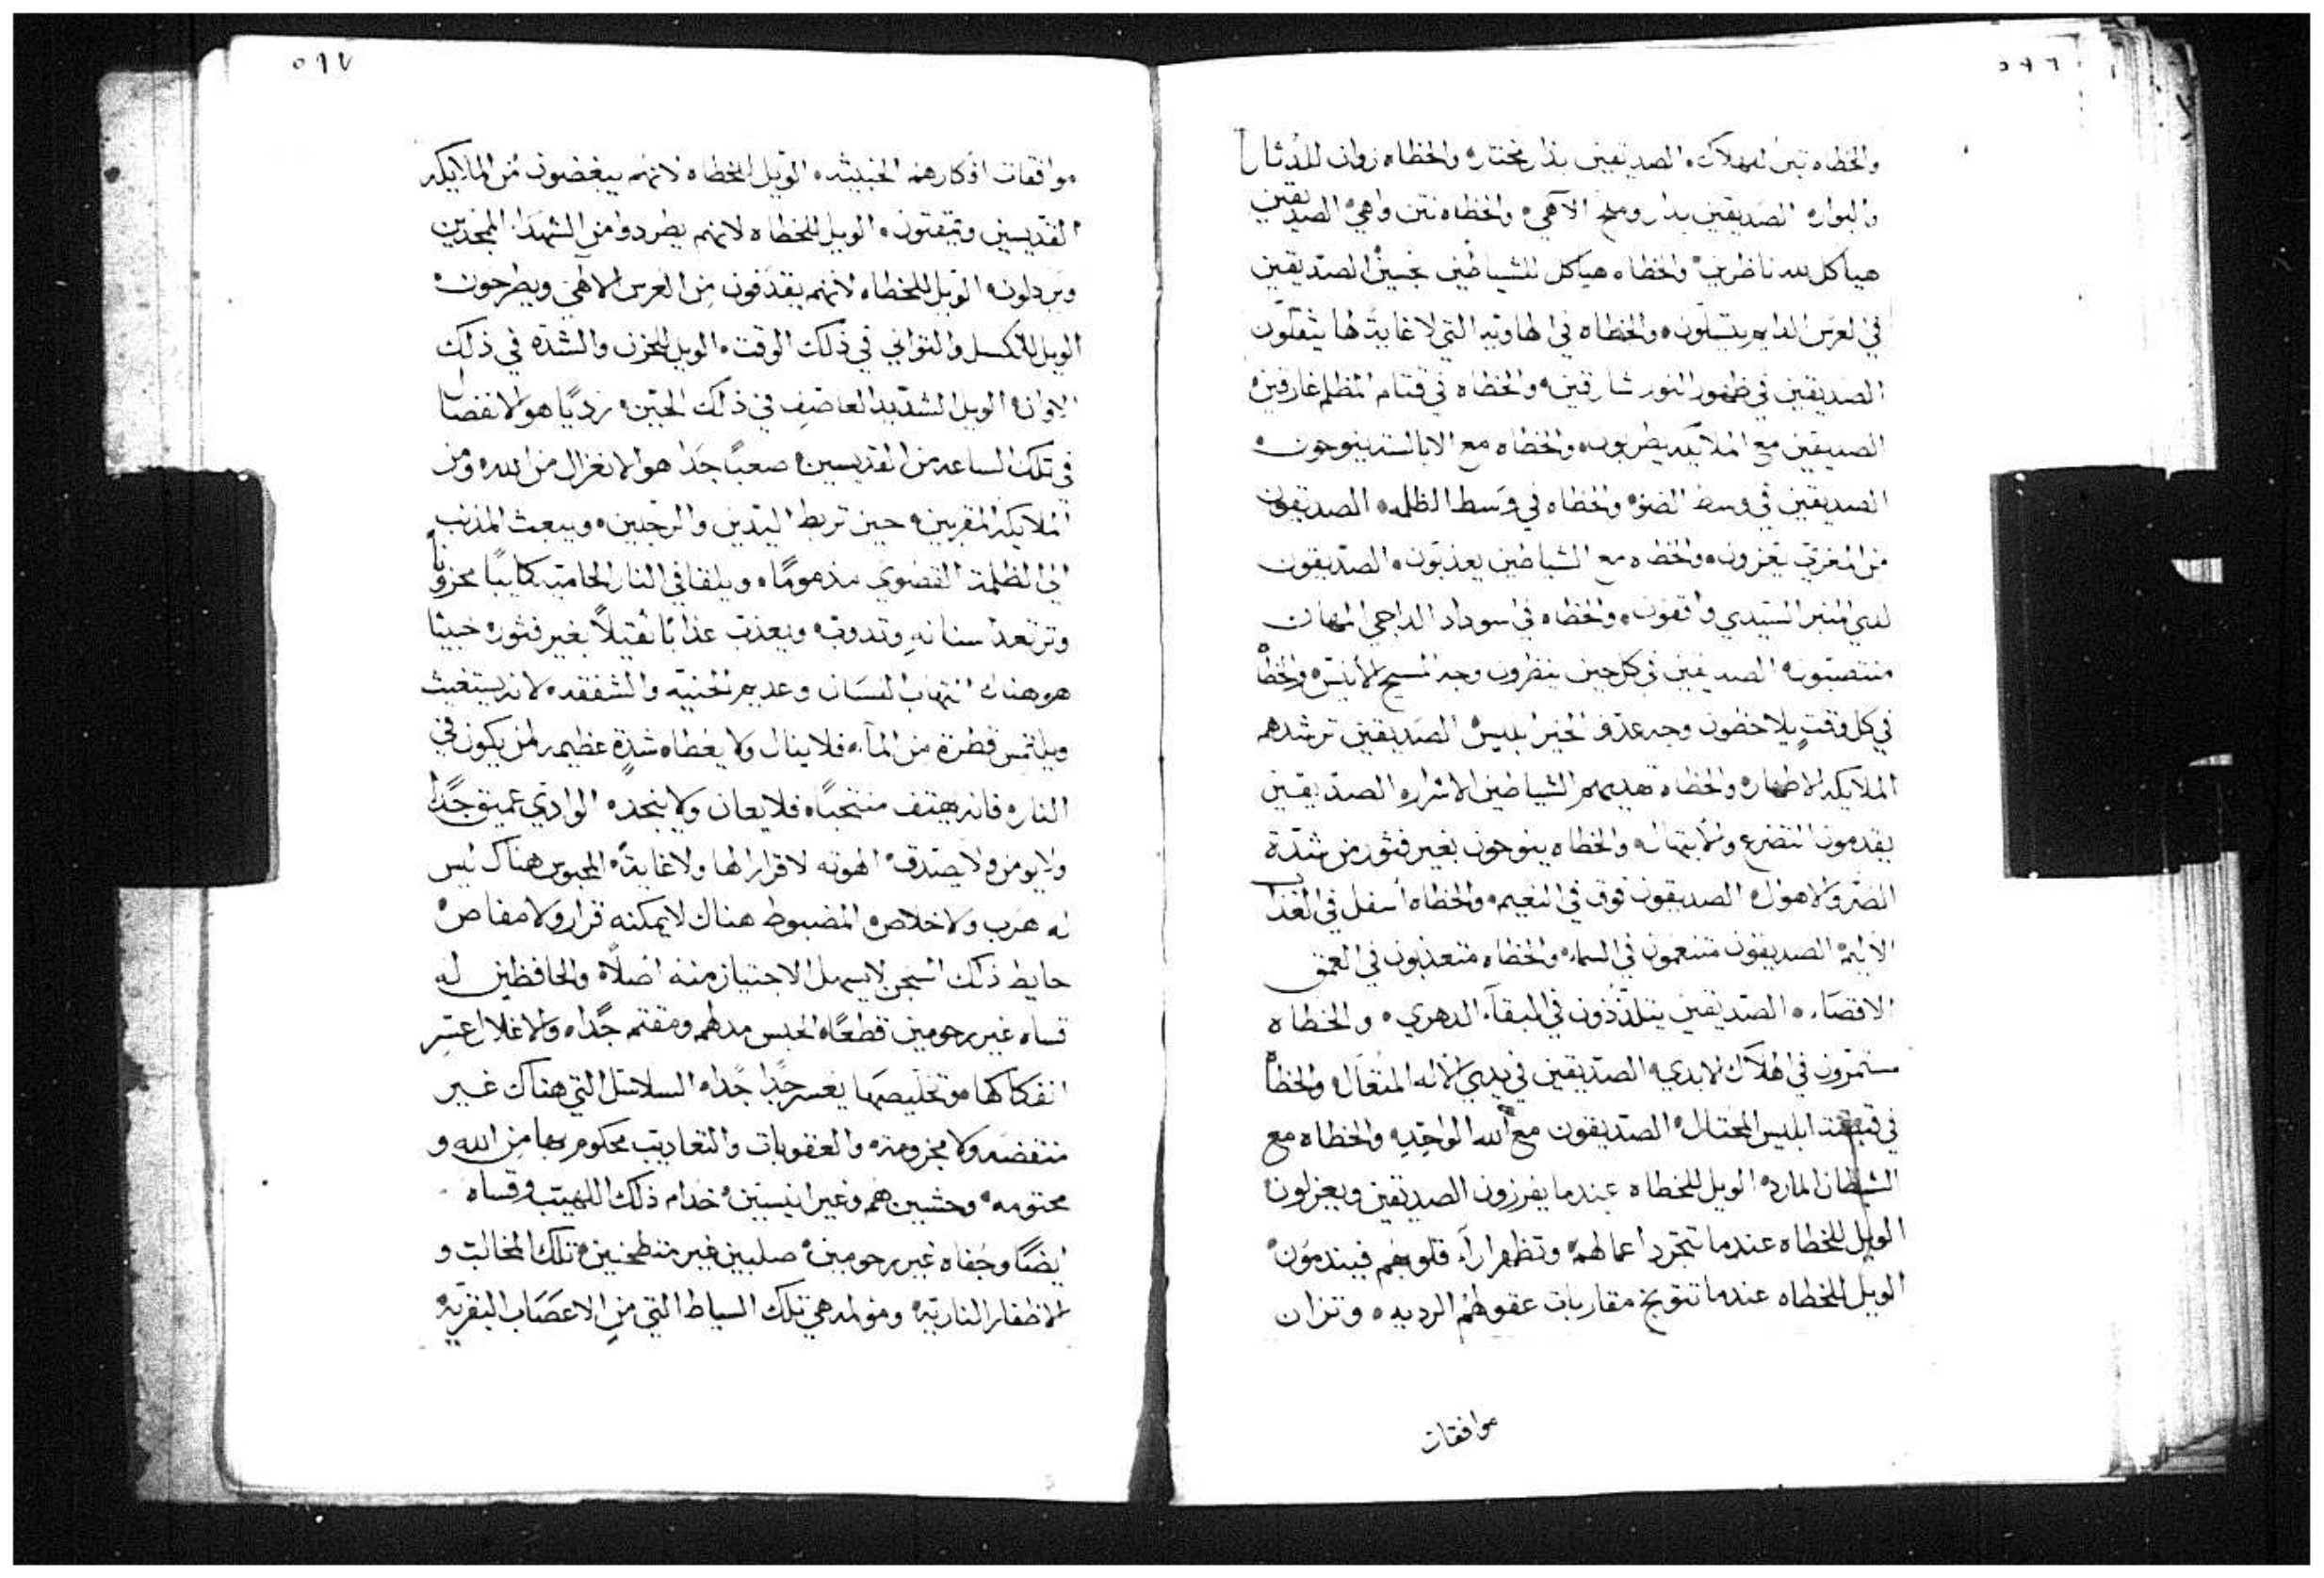 ٥٩٦
والخطاه تبن للهلاك الصديقين بذار مختاره والخطاه زوان للدثار
والبواره الصديقين بذار ومنح الاهي والخطاه نتن واهي الصديقين
هياكل لله ناظرين والخطاه هياكل للشياطين نجسين الصديقين
في العرس الدايم يتسلون والخطاه في الهاويه التي لا غاية لها يثقلون
الصديقين في ظهور النور شارقين والخطاه في قتام المظلم غارقين
الصديقين مع الملايكه يطربون والخطاه مع الابالسه ينوحون
الصديقين في وسط الضوء والخطاه في وسط الظلمه الصديقون
من المعزي يتعزون والخطاه مع الشياطين يعذبون الصديقون
لدي المنبر السيدي واقفون والخطاه في سوداد الداجي المهان
منتصبون الصديقين في كل حين ينظرون وجه المسيح والخطاه
في كل وقت يلاحظون وجه عدو الخير ابليس الصديقين ترشدهم
الملايكه الاطهار والخطاه تهديهم الشياطين الاشرار الصديقين
يقدمون التضرع والابتهال والخطاه ينوحون بغير فتور من شدة
الضر والاهوال الصديقون فوق في النعيم والخطاه اسفل في العذاب
الاليم الصديقون متنعمون في السماء والخطاه متعذبون في العمق
الاقصاء الصديقين يتلذذون في البقاء الدهري والخطاه
مستمرون في الهلاك الابدي الصديقين في يدي الاله المتعال والخطاه
في قبضة ابليس المحتال الصديقون مع الله الواحد والخطاه مع
الشيطان المارد الويل للخطاه عندما يفرزون الصديقين ويعزلون
الويل للخطاه عندما تتجرد اعمالهم وتظهر اراء قلوبهم فيندمون
الويل للخطاه عندما تتوبخ مقاربات عقولهم الرديه وتزان
موافقات
٥٩٧
موافقات افكارهم الخبيثه الويل للخطاه لانهم يبغضون من الملايكه
القديسين ويمقتون الويل للخطاه لانهم يطردوا من الشهدا الممجدين
ويرذلون الويل للخطاه لانهم يقذفون من العرس الالاهي ويطرحون
الويل للكسل والتواني في ذلك الوقت الويل للحزن والشدة في ذلك
الاوان الويل الشديد العاصف في ذلك الحين رديا هو الانفصال
في تلك الساعه من القديسين صعبا جدا هو الانعزال من الله ومن
الملايكه المقربين حين تربط اليدين والرجلين ويبعث المذنب
الي الظلمة القصوي مذموما ويلقا في النار الحاميه كايبا محزونا
وترتعد سنانه وتدوب ويعذب عذابا ثقيلا بغير فتور خبيثا
هو هناك التهاب اللسان وعديم الحنيه والشفقه لانه يستغيث
ويلتمس قطرة من الماء فلا ينال ولا يعطاه شدة عظيمه لمن يكون في
النار فانه يهتف منتحبا فلا يعان ولا ينجد الوادي عميق جدا
ولا يومن ولا يصدق الهوته لا قرار لها ولا غاية المحبوس هناك ليس
له هرب ولا خلاص المضبوط هناك لا يمكنه قرار ولا مفاص
حايط ذلك السجن لا يسهل الاجتياز منه اصلا والحافظين له
قساه غير رحومين قطعا الحبس مدلهم ومقتم جدا والاغلال عسر
انفكاكها وتخليصها يعسر جدا جدا السلاسل التي هناك غير
منتقضه ولا مخرومه والعقوبات والتعاديب محكوم بها من الله و
مختومه وحشيين هم وغير انيسين خدام ذلك اللهيب وقساه
ايضا وجفاه غير رحومين صلبين غير متطحنين تلك المخالب و
الاظفار الناريه ومولمه هي تلك السياط التي من الاعصاب البقريه